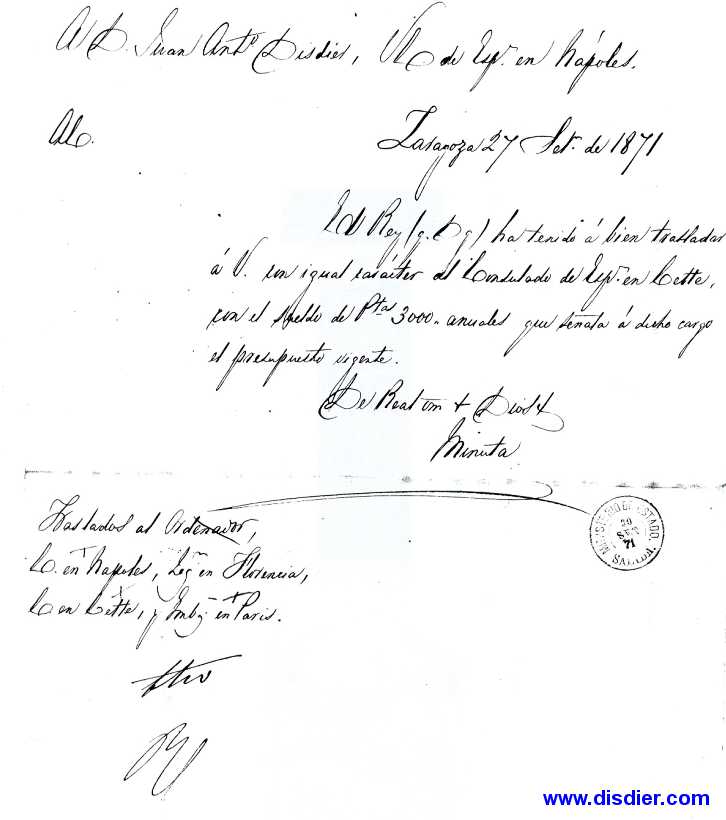 A D. Juan Antº Disdier, VC de Espª. en Nápoles.
Al C.
Zaragoza 27 Set. de 1871
El Rey (q. D. g) ha tenido á bien trasladar
á V. con igual carácter al Consulado de Espª. en Cette,
con el sueldo de Ptas 3000., anuales que señala á dicho cargo
el presupuesto vigente.
De Real orn + Dios &
Minuta
Traslados al Ordenador,
C. en Napoles, Legn en Florencia,
C en Cette, y Emb. en Paris.
MINISTERIO DE ESTADO.
29
SET
71
SALIDA.
www.disdier.com